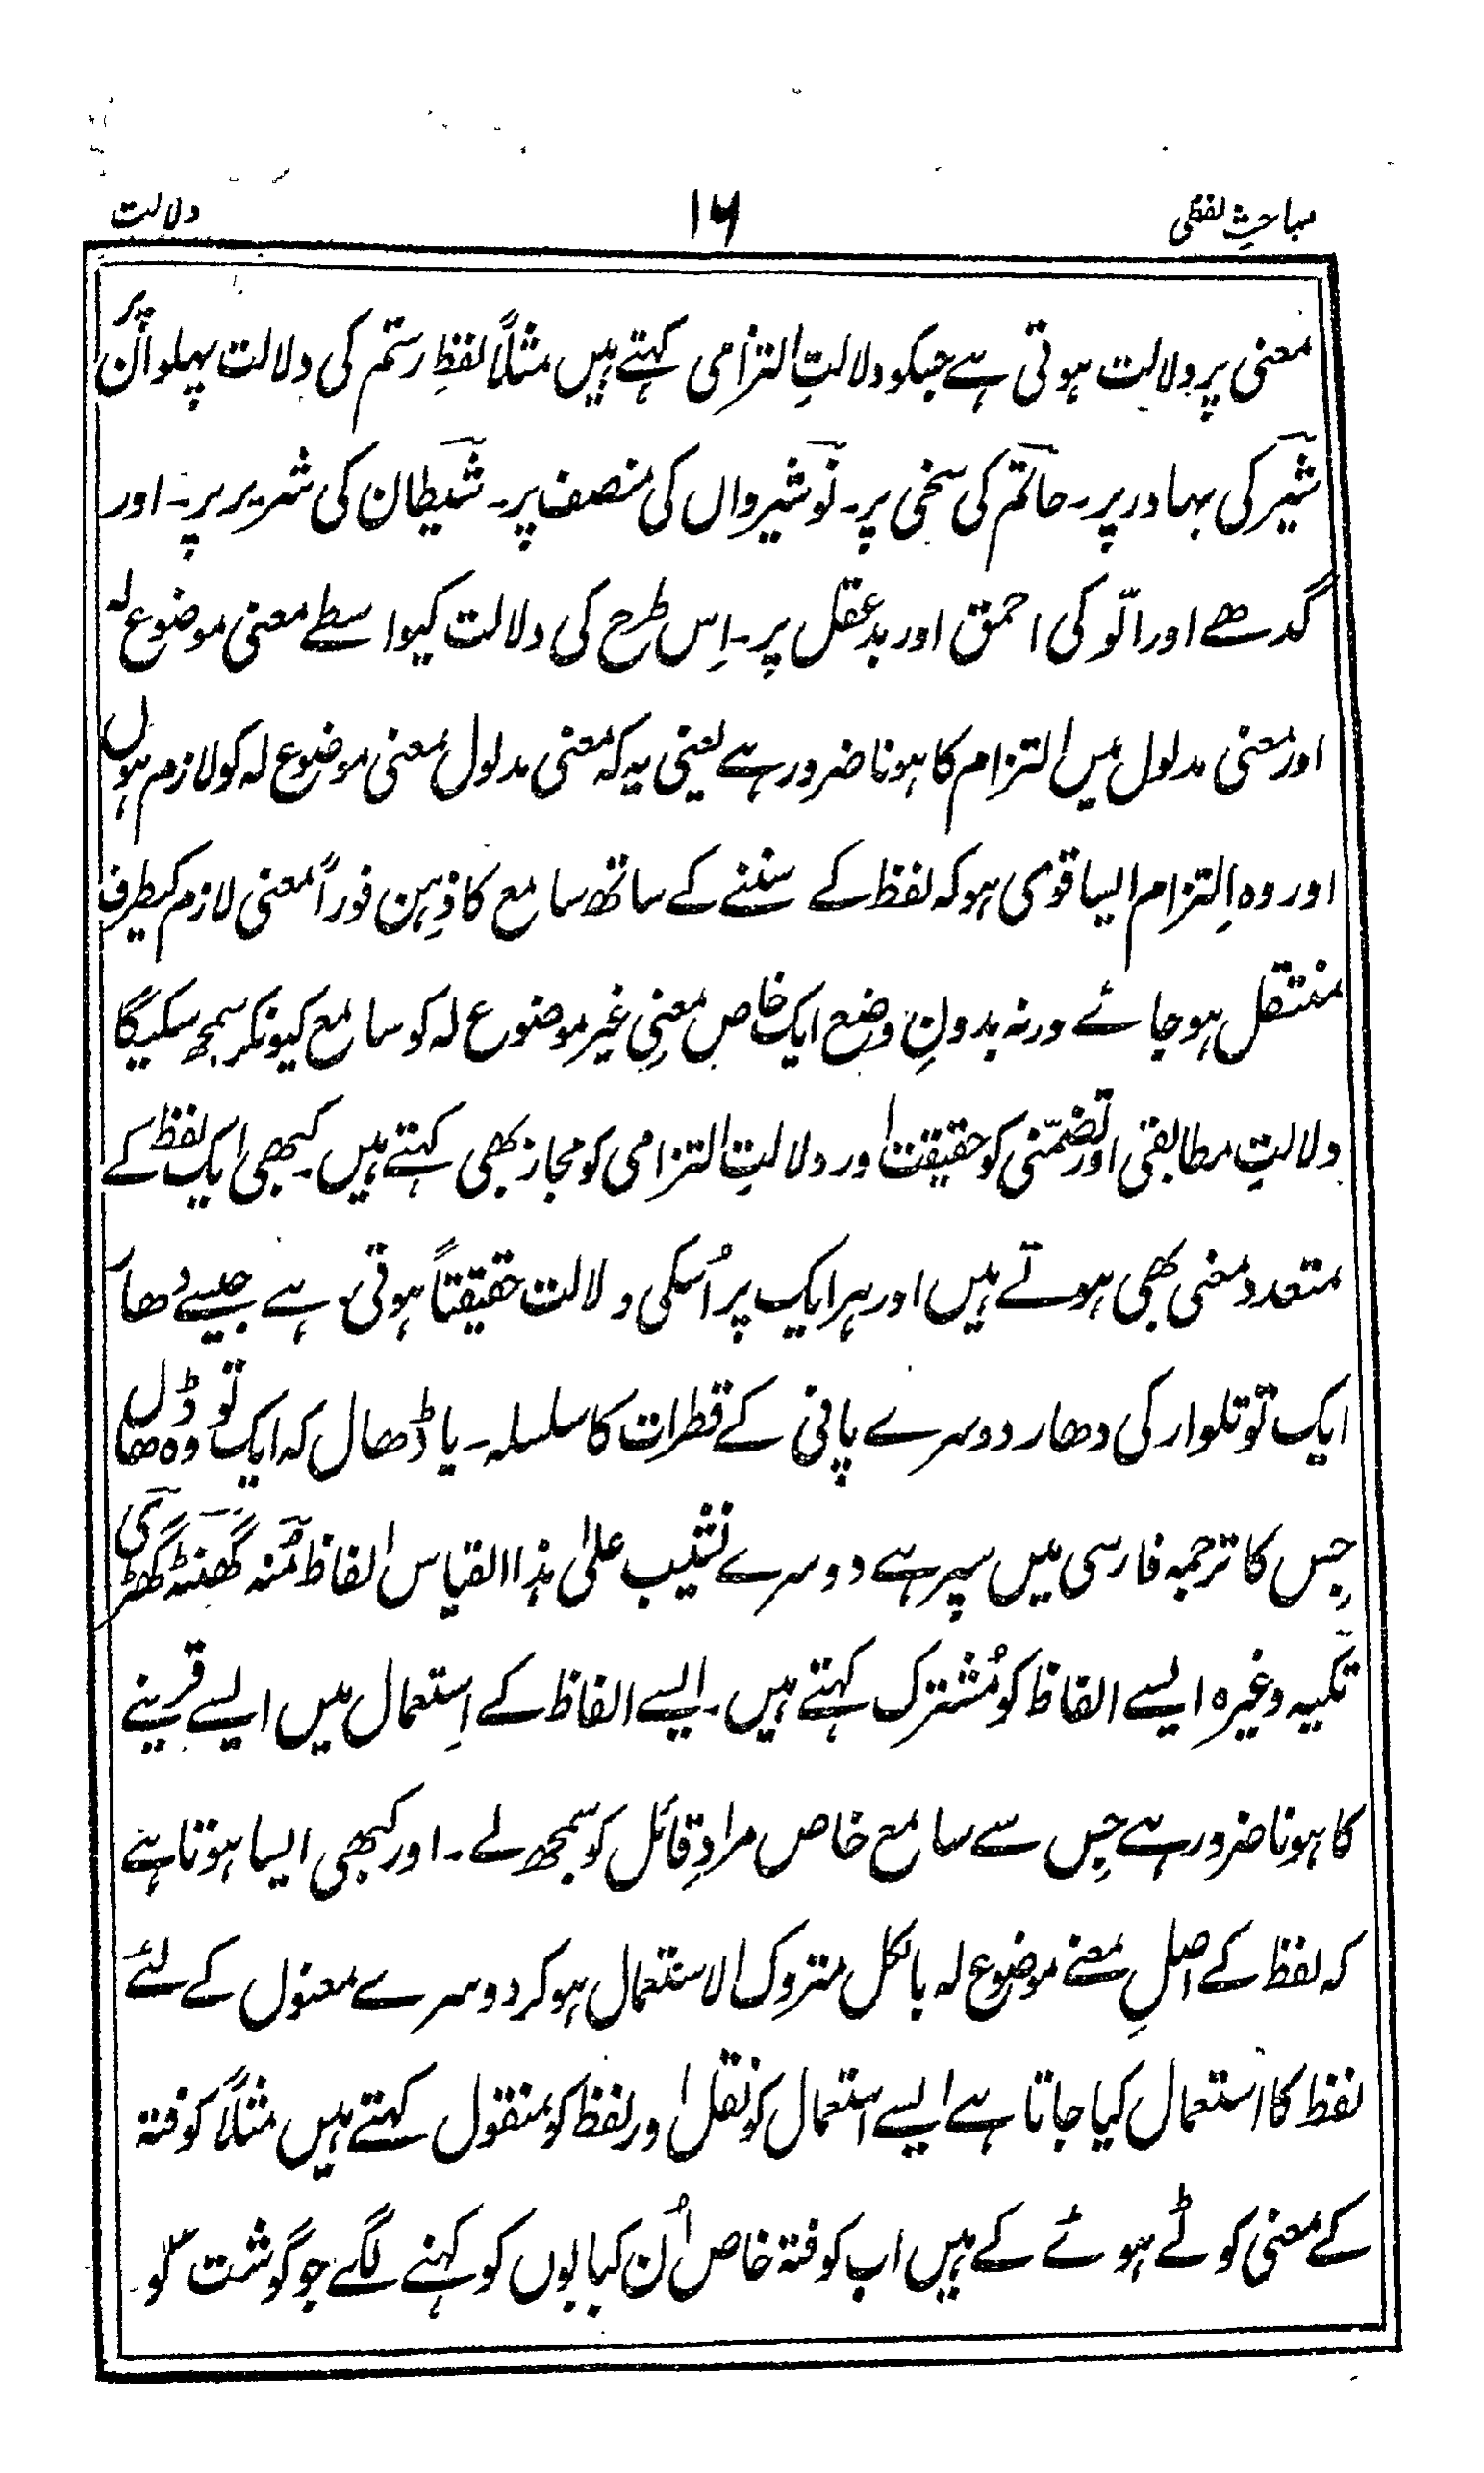 مباحثِ لفظی ۱۶ دلالت
معنی پر دلالت ہوتی ہے جسکو دلالتِ التزامی کہتے ہیں مثلاً لفظِ رستم کی دلالت پہلوان پر
شیر کی بہادر پر۔ حاتم کی سخی پر۔ نوشیرواں کی منصف پر۔ شیطان کی شریر پر۔ اور
گدھے اور الّو کی احمق اور بدعقل پر۔ اِس طرح کی دلالت کیواسطے معنی موضوع لہ
اور معنی مدلول میں التزام کا ہونا ضرور ہے یعنی یہ کہ معنی مدلول معنی موضوع لہ کو لازم ہوں
اور وہ اِلتزام ایسا قوی ہو کہ لفظ کے سننے کے ساتھ سامع کا ذِہن فوراً معنی لازم کیطرف
منتقل ہو جائے ورنہ بدونِ وضع ایک خاص معنیِ غیر موضوع لہ کو سامع کیونکر سمجھ سکیگا
دلالتِ مطابقی اور تضمّنی کو حقیقت اور دلالتِ التزامی کو مجاز بھی کہتے ہیں۔ کبھی ایک لفظ کے
متعدد معنی بھی ہوتے ہیں اور ہر ایک پر اُسکی دلالت حقیقتاً ہوتی ہے جیسے دھار
ایک تو تلوار کی دھار دوسرے پانی کے قطرات کا سلسلہ۔ یا ڈھال کہ ایک تو وہ ڈھال
جِس کا ترجمہ فارسی میں سپر ہے دوسرے نشیب علیٰ ہذا القیاس الفاظ مُنہ گھنٹہ گھڑی
تکیہ وغیرہ ایسے الفاظ کو مُشترک کہتے ہیں۔ ایسے الفاظ کے اِستعمال میں ایسے قرینے
کا ہونا ضرور ہے جِس سے سامع خاص مرادِ قائل کو سمجھ لے۔ اور کبھی ایسا ہوتا ہے
کہ لفظ کے اصلِ معنے موضوع لہ بالکل متروک الاستعمال ہو کر دوسرے معنوں کے لئے
لفظ کا استعمال کیا جاتا ہے ایسے استعمال کو نقل اور لفظ کو منقول کہتے ہیں مثلاً کوفتہ
کے معنی کوٹے ہوئے کے ہیں اب کوفتہ خاص اُن کبابوں کو کہنے لگے جو گوشت کو